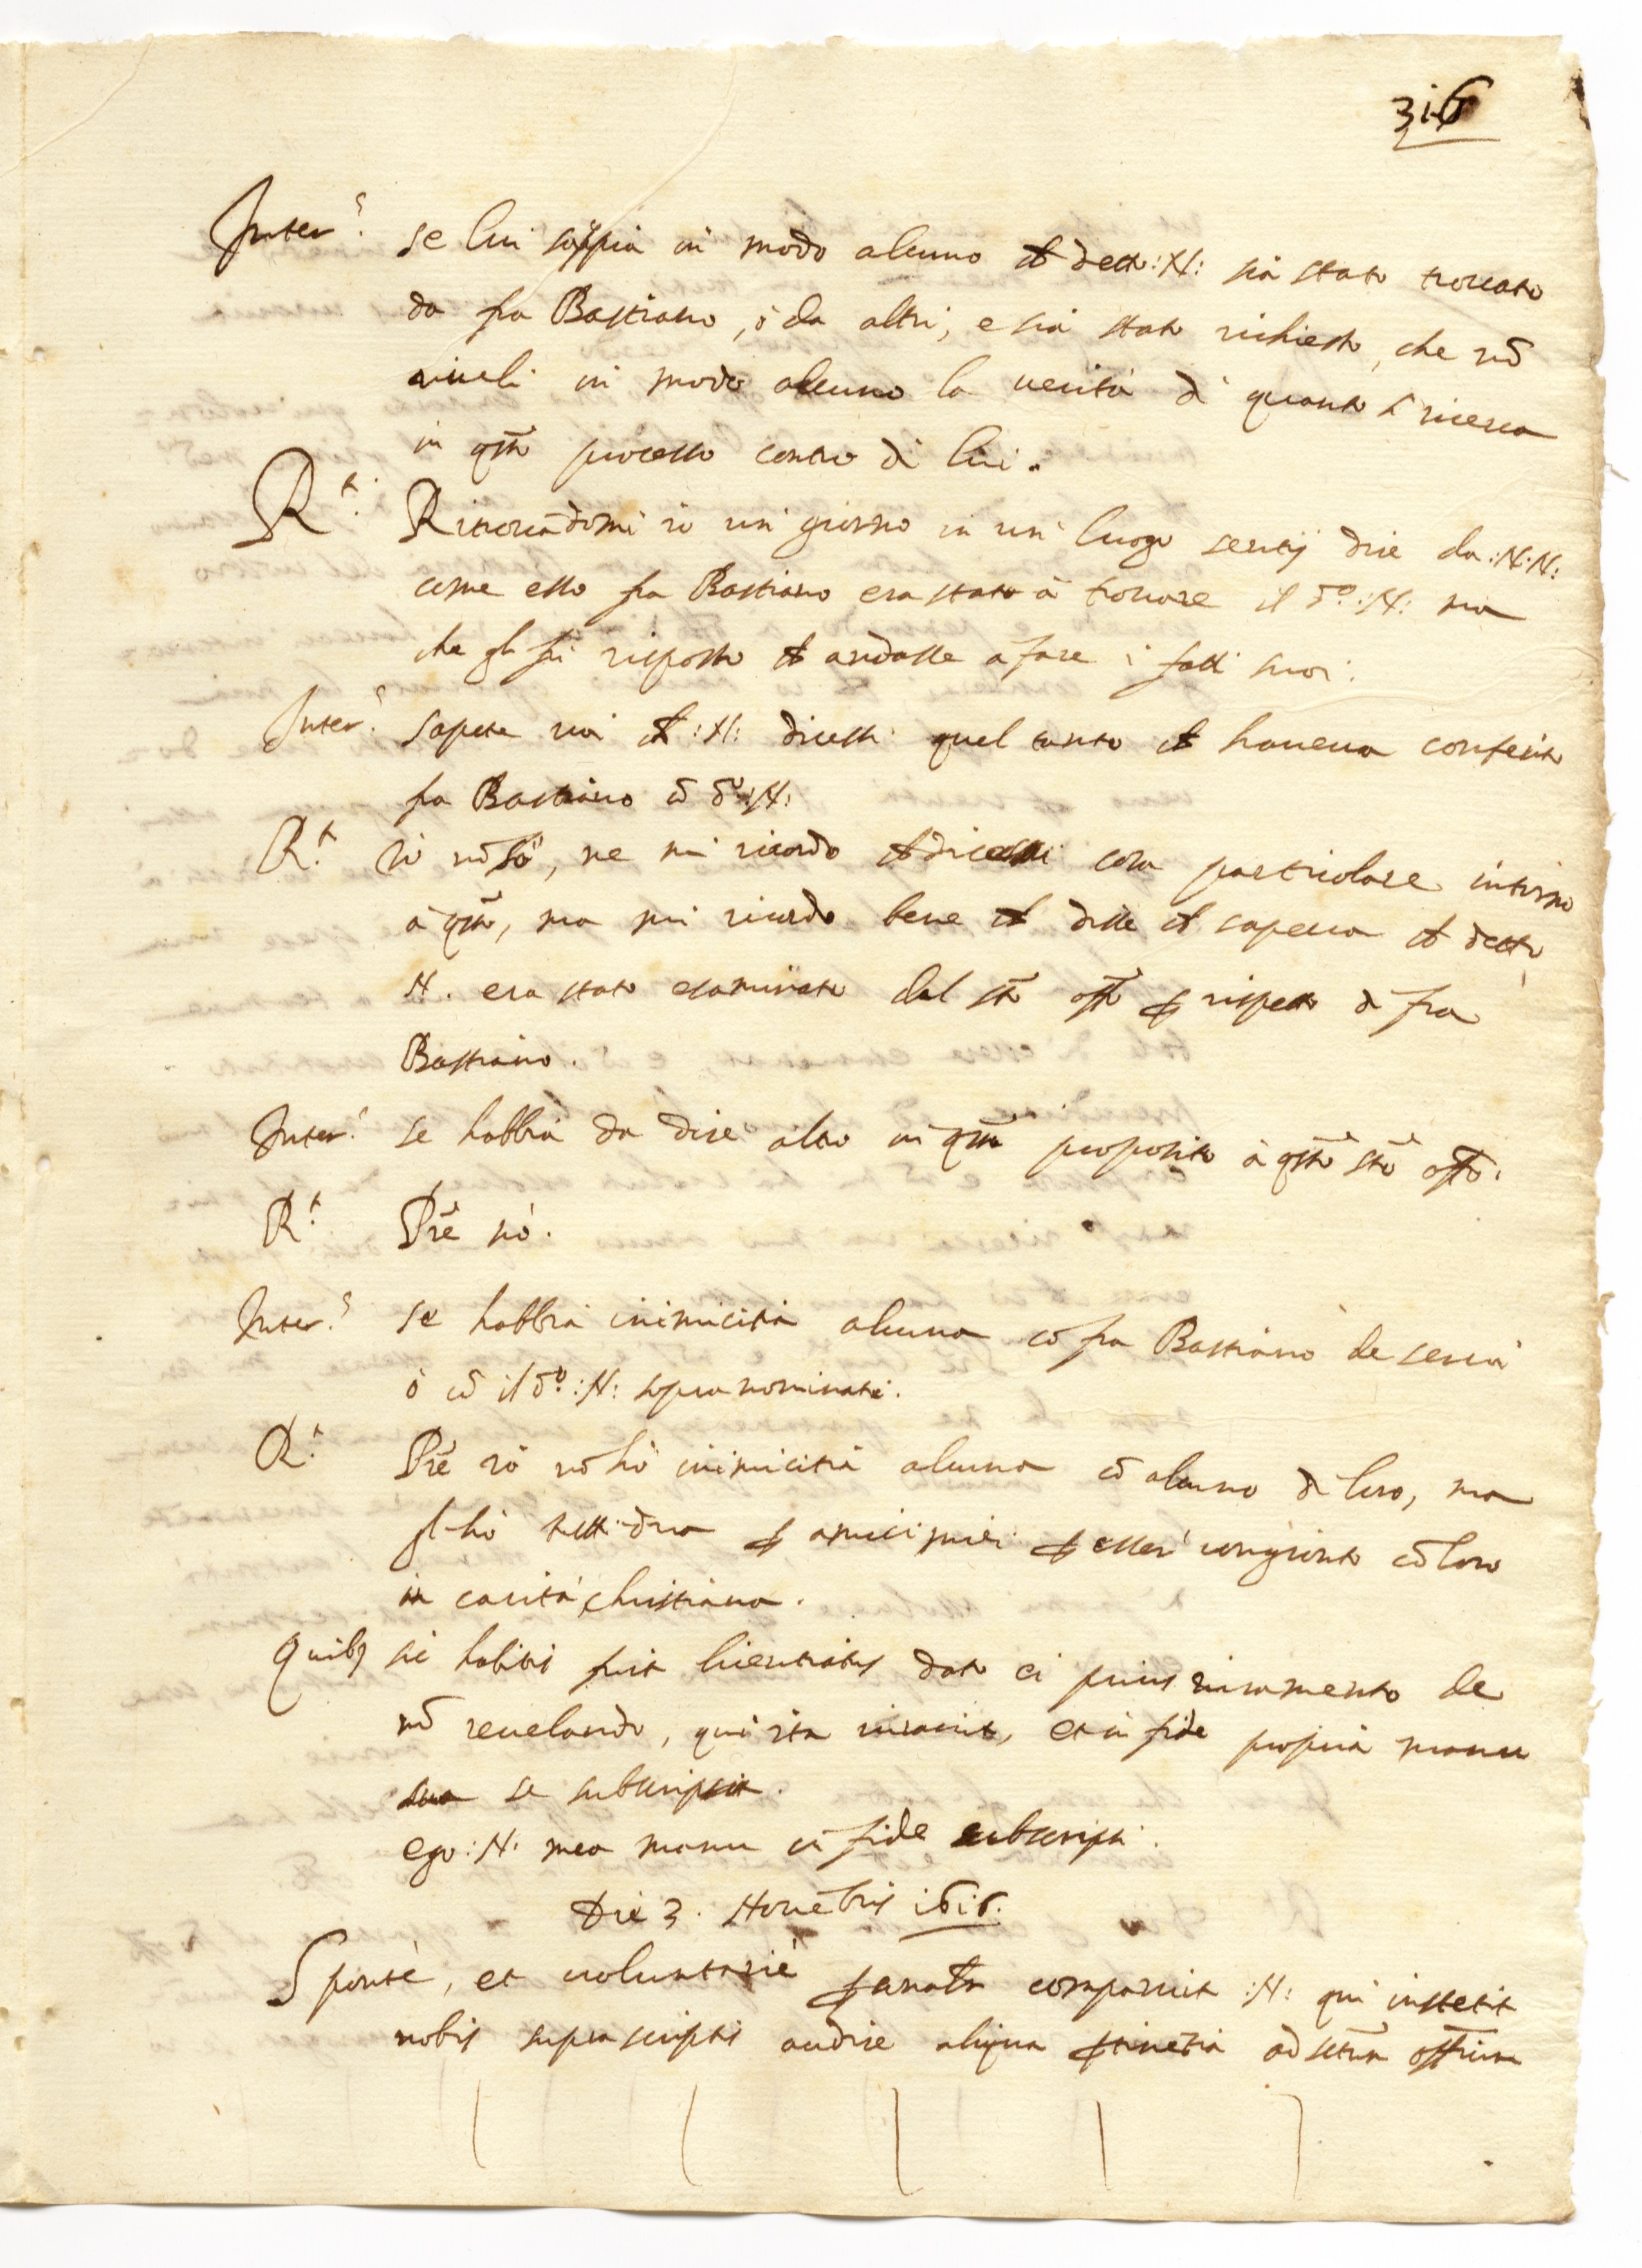 316
Inter.s se lui sappia in modo alcuno ch detto :N: sia stato trovato
da fra Bastiano, ò da altri, e sia stato richiesto, che nō
riueli in modo alcuno la uerità di quanto si ricerca
in qsto processo contro di lui.
R.t Ritrouādomi io un giorno in un luogo sentij dire da :N:N:
come esso fra Bastiano era stato à trouare il do. :N: ma
che gli fù risposto ch andasse a fare i fatti suoi.
Inter.s Sapete uoi ch :N: dicesti quel tanto ch haueua conferito
fra Bastiano cō do. :N:
R.t Io nō sò, ne mi ricordo ch dicessi cosa particolare intorno
à qsto, ma mi ricordo bene ch disse ch sapeua ch detto
N. era stato esaminato dal sto offo p rispetto di fra
Bastiano.
Inter.s se habbia da dire altro in qsto proposito à qsto sto offo.
R.t Pre nò.
Inter.s se habbia inimicitia alcuna cō fra Bastiano de
ò cō il do. :N: sopranominati.
R.t Pre io nō hò inimicitia alcuna cō alcuno di loro, ma
gl'hò tutti dua p amici miei p esser congionto cō loro
in carità christiana.
Quibq sic habitis fuit licentiatus dato ei prius iuramento de
nō reuelando, qui ita iurauit, et in fide propria manu
sua se subscripsit.
ego :N: mea manu in fide subscripsi.
Die 3. Nouēbris 1616.
Sponte, et uoluntarie psonalr comparuit :N: qui institit
nobis suprascriptis audire aliqua ptinētia ad sctum offium